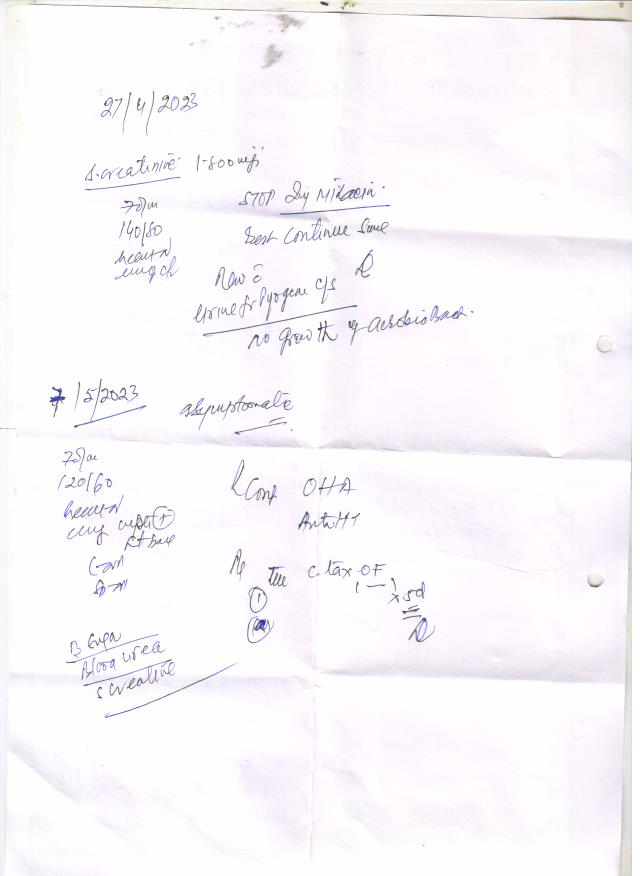 27/4/2023
S.creatinine 1.800mg
78/m STOP Inj Mikacin.
140/80 Rest Continue Same
heart N
lung cl
Rev c̄
Urine for Pyogene c/s
no growth of aerobic Bact.
7/5/2023 asymptomatic
78/m
120/60 Cont OHA
heart N AntiHT
lung
Rt base
Tab C.tax-OF
1 — 1
x 5d
B Sugar
Blood urea
S creatine